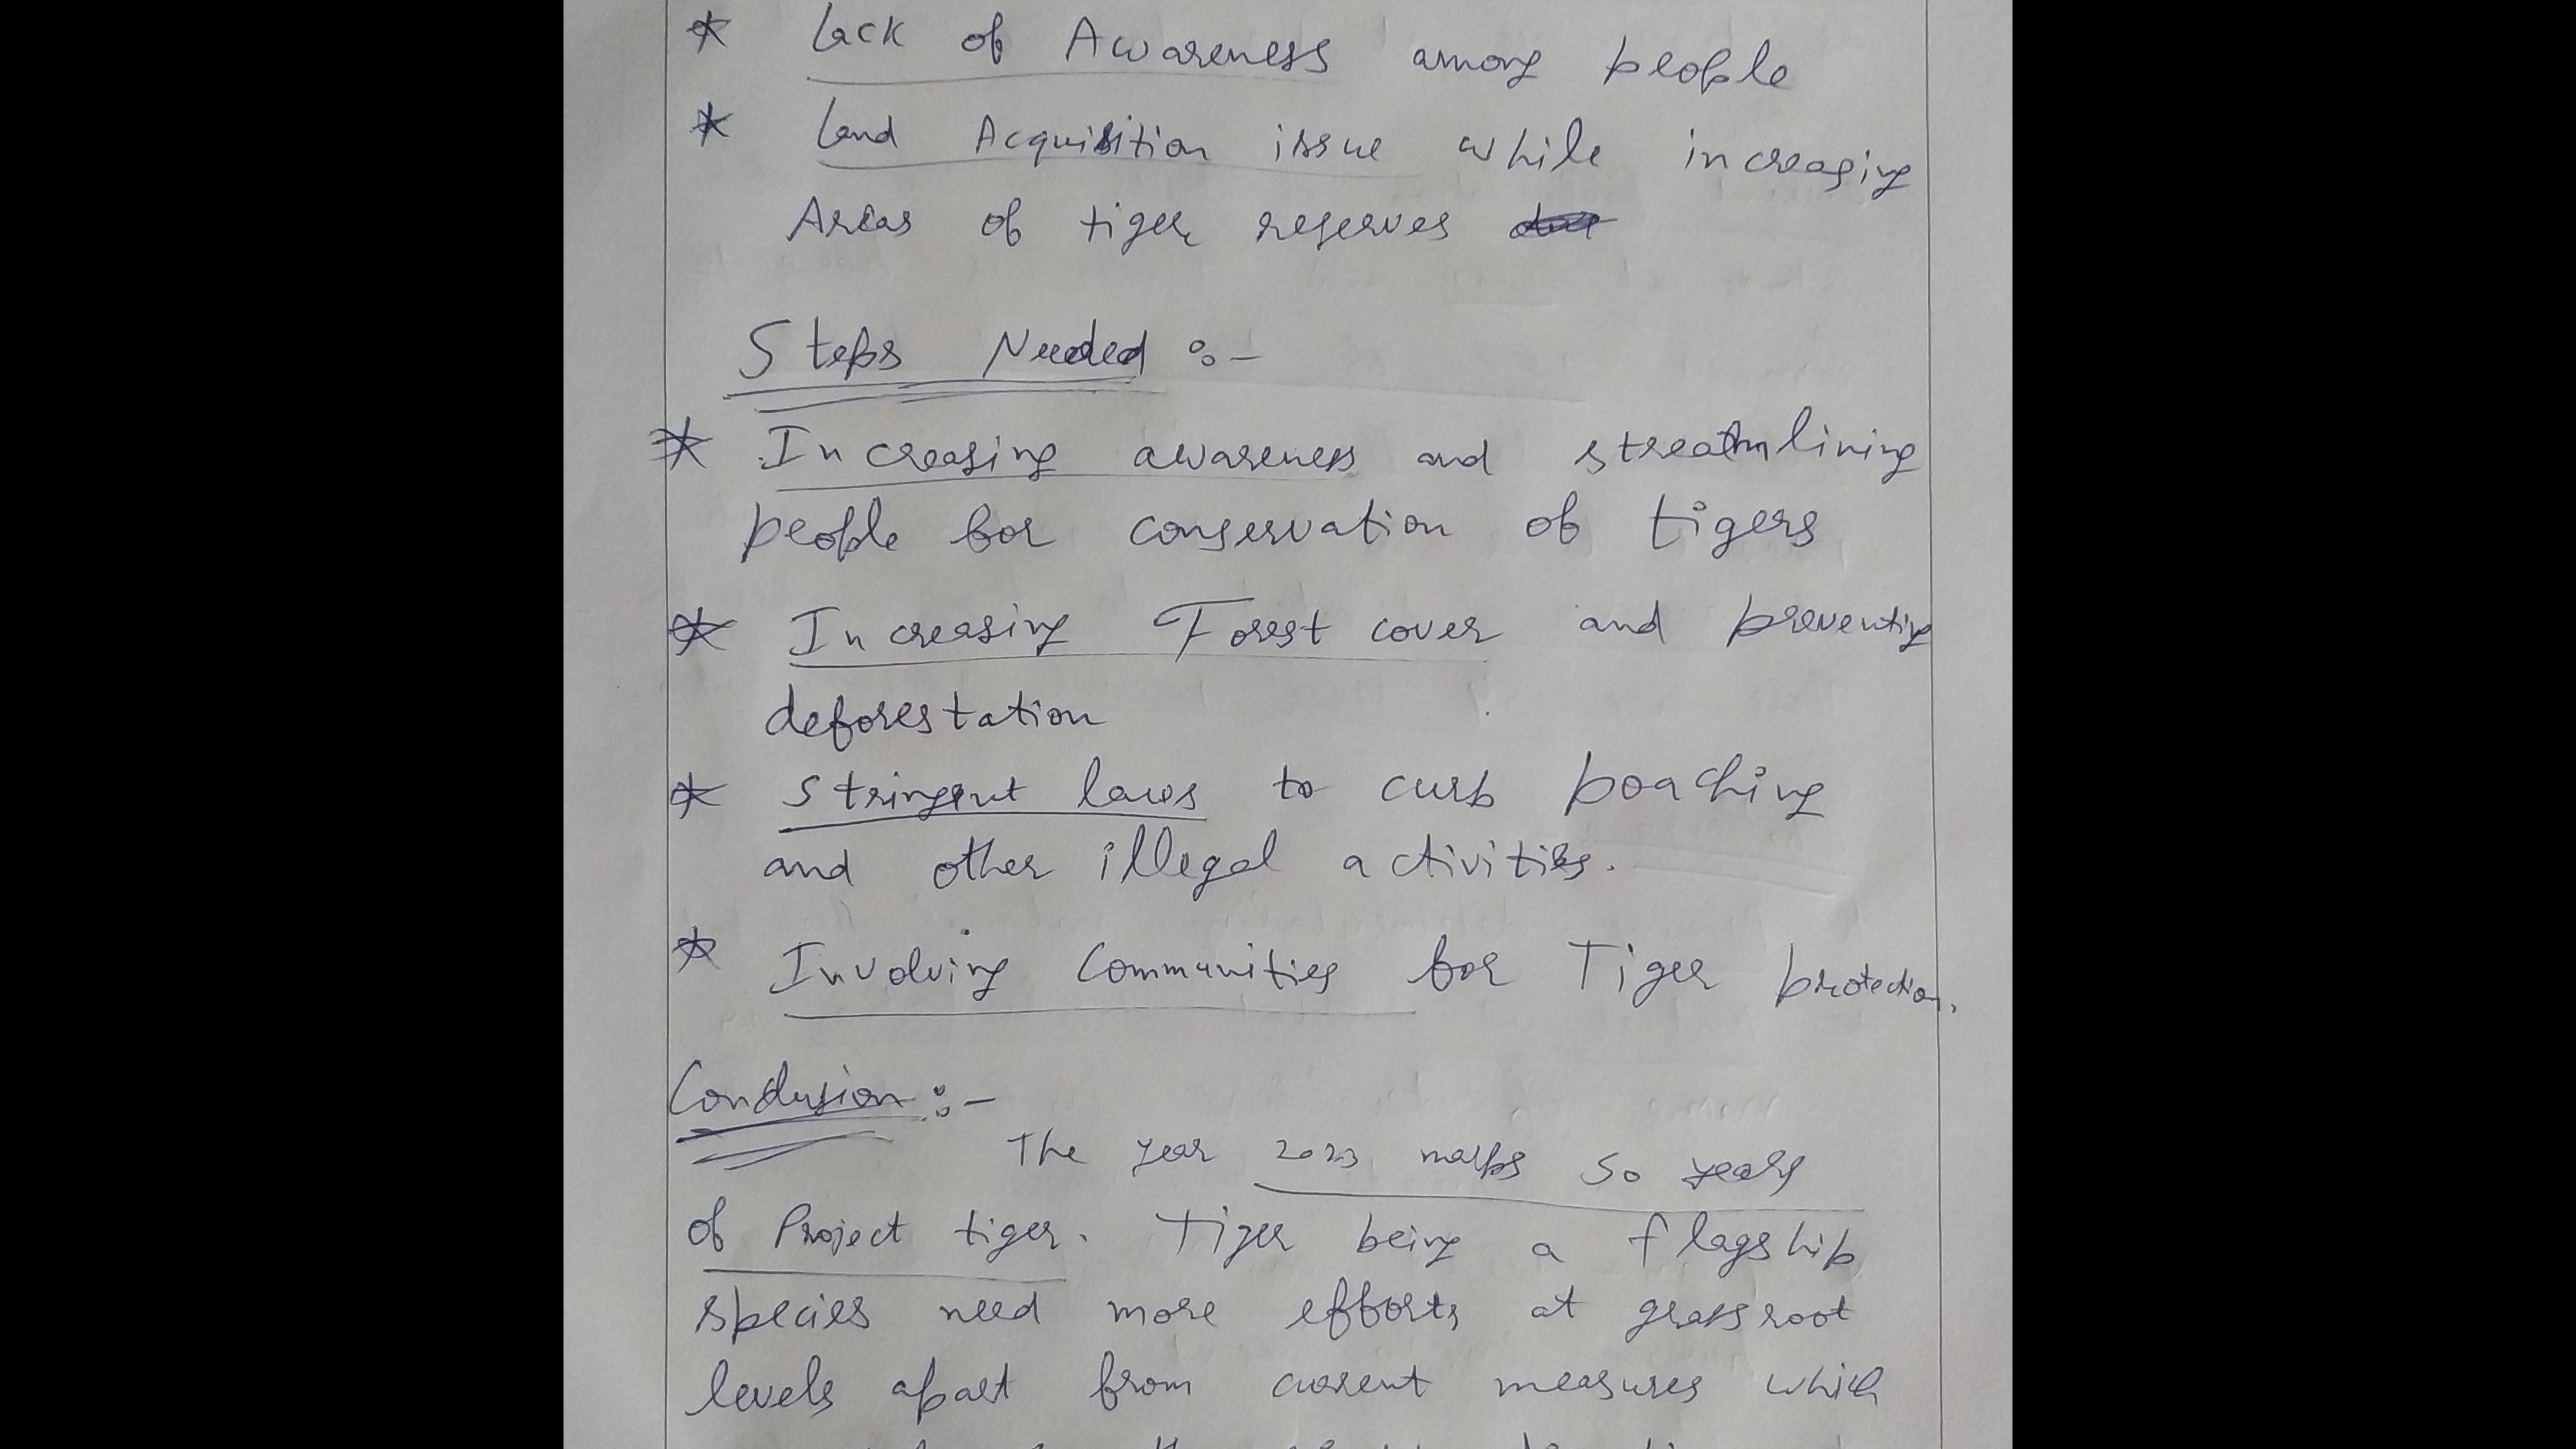 * Lack of Awareness among people
* Land Acquisition issue while increasing
Areas of tiger reserves
Steps Needed :-
* Increasing awareness and streamlining
people for conservation of tigers
* Increasing Forest cover and preventing
deforestation
* Stringent laws to curb poaching
and other illegal activities.
* Involving Communities for Tiger protection.
Conclusion :-
The year 2023 marks 50 years
of Project tiger. Tiger being a flagship
species need more efforts at grassroot
levels apart from current measures which